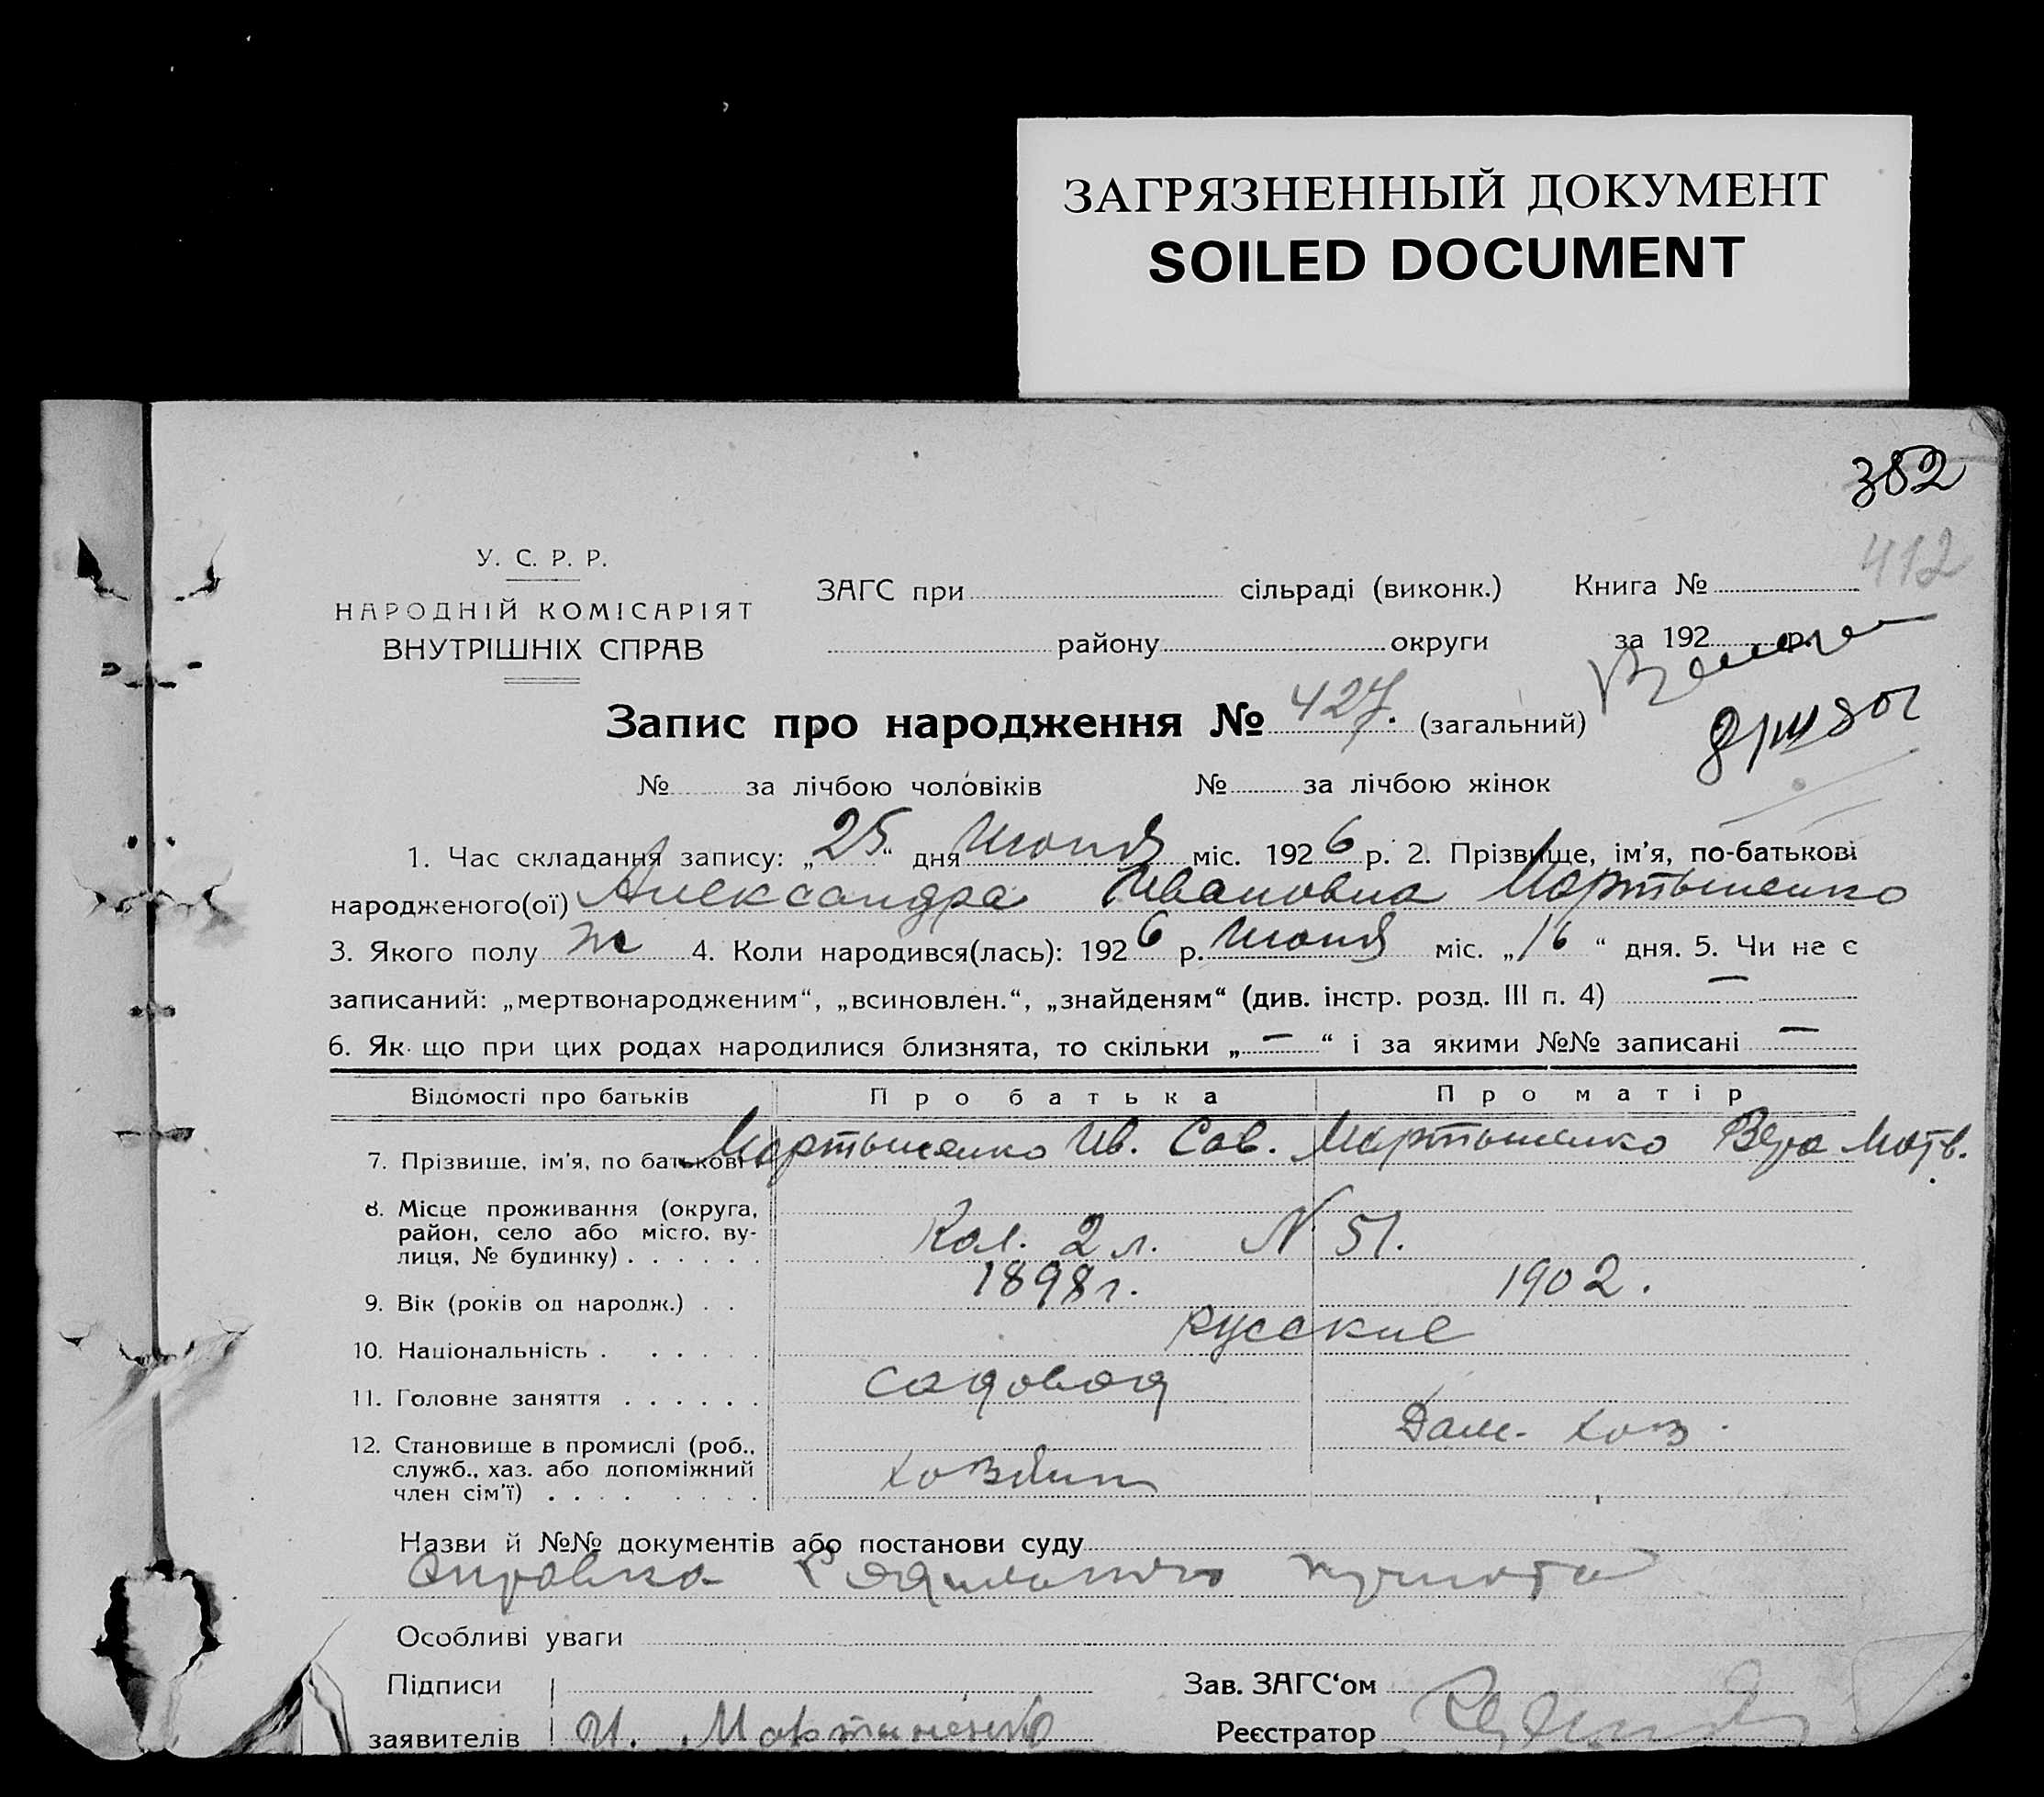 ЗАГРЯЗНЕННЫЙ ДОКУМЕНТ
SOILED DOCUMENT
382
412
У. С. Р. Р.
НАРОДНІЙ КОМІСАРІЯТ
ВНУТРІШНІХ СПРАВ
ЗАГС при сільраді (виконк.) Книга №
району округи за 192 р.
Запис про народження № 427. (загальний)
№ за лічбою чоловіків № за лічбою жінок
1. Час складання запису: „25“ дня Июня міс. 1926 р. 2. Прізвище, ім'я, по-батькові
народженого(ої) Александра Ивановна Мартыненко
3. Якого полу ж 4. Коли народився(лась): 1926 р. Июня міс. „16“ дня. 5. Чи не є
записаний: „мертвонародженим“, „всиновлен.“, „знайденям“ (див. інстр. розд. III п. 4) —
6. Як що при цих родах народилися близнята, то скільки „—“ і за якими №№ записані —
Відомості про батьків Про батька Про матір
7. Прізвище, ім'я, по батькові Мартыненко Ив. Сав. Мартыненко Вера Матв.
8. Місце проживання (округа,
район, село або місто, ву-
лиця, № будинку) Кол. 2 л. N 51.
9. Вік (років од народж.) 1898 г. 1902.
10. Національність русские
11. Головне заняття садовод
Дом. хоз.
12. Становище в промислі (роб.,
служб., хаз. або допоміжний
член сім'ї) хозяин
Назви й №№ документів або постанови суду
справка Родильного пункта
Особливі уваги
Підписи
заявителів И. Мартыненко
Зав. ЗАГС'ом
Реєстратор